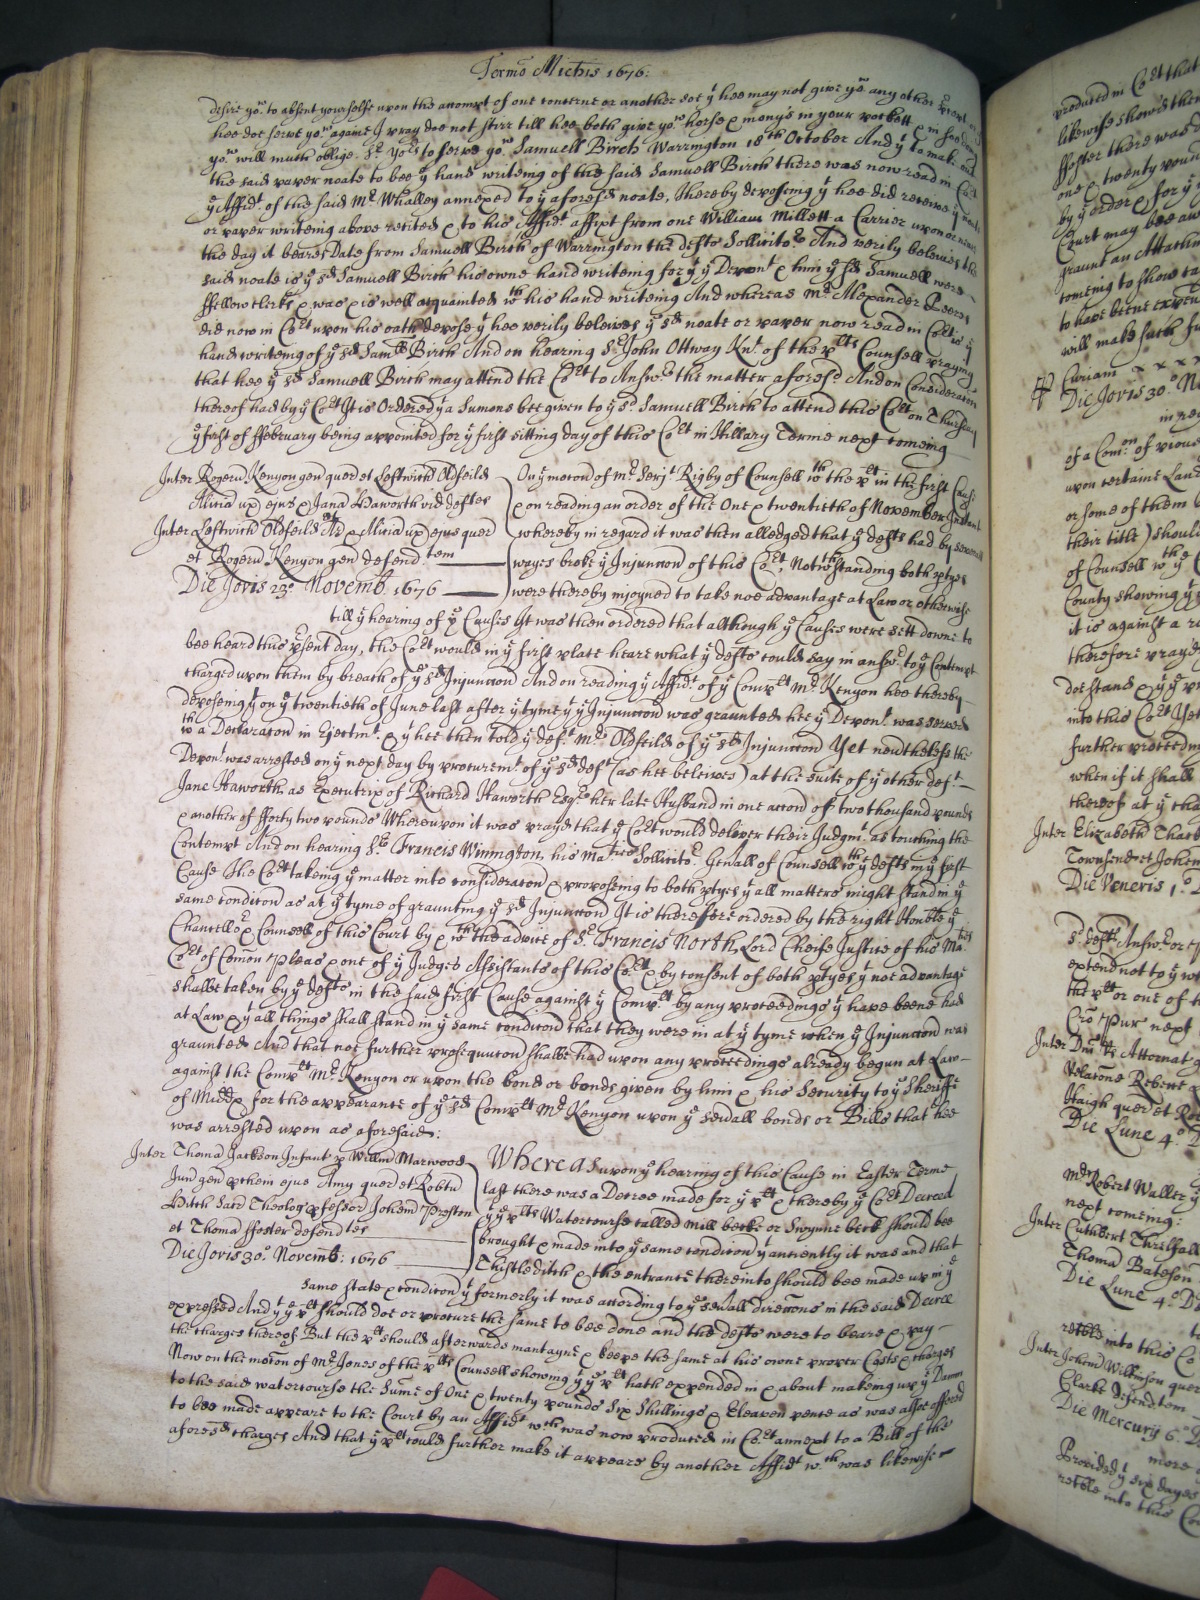 Termo Michis 1676:
desire yow. to absent yourselfe upon the accompt of one concerne or another doe yt hee may not give yow any other
hee doe serve yow againe I pray doe not stirr till hee both give yow horse & monys in your pockett &c in soe doeing
yow will much oblige. Sr. yors to serve yow Samuell Birch Warrington 18th October And yt to make out
the said paper noate to bee ye hand writeing of the said Samuell Birch there was now read in Cort
ye Affidt. of the said Mr. Whalley annexed to ye aforesd noate, thereby deposeing yt hee did receive ye noate
or paper writeing above recited & to his Affidt. affixt from one William Millett a Carrier upon or neare
the day it beares Date from Samuell Birch of Warrington the defts Sollicitor. And verily beleives the
said noate is ye sd Samuell Birch his owne hand writeing for yt ye Depont. & him ye sd Samuell were
ffellow Clerks & was & is well acquainted wth his hand writeing And whereas Mr. Alexander Leeves
did now in Cort upon his oath depose yt hee verily beleives ye sd noate or paper now read in Cort is ye
hand writeing of ye sd Samll Birch And on hearing Sr. John Ottway Knt. of the plts Counsell praying
that hee ye sd Samuell Birch may attend the Cort to Answr. the matter aforesd And on Consideration
thereof had by ye Cort It is Ordered yt a Sumons bee given to ye sd Samuell Birch to attend this Cort on Thursday
ye first of ffebruary being appointed for ye first sitting day of this Cort in Hillary Terme next comeing
Inter Rogerū Kenyon gen quer et Leftwich Oldfeild
Alicia uxr ejus & Jana Haworth vid deftes
Inter Leftwich Oldfeild Ar & Alicia uxr ejus quer
et Rogerū Kenyon gen defendtem
Die Jovis 23o Novemb. 1676
On ye motion of Mr. Serjt. Rigby of Counsell wth the plt in the first Cause
& on reading an order of the One & twentieth of November Instant
whereby in regard it was then alledged that ye defts had by severall
wayes broke ye Injunction of this Cort, Notwthstanding both ptyes
were thereby injoyned to take noe advantage at Law or otherwise
till ye hearing of ye Causes It was then ordered that although ye Causes were sett downe to
bee heard this p̃sent day, the Cort would in ye first place heare what ye defts could say in answr. to ye Contempt
charged upon them by breach of ye sd Injunction And on reading ye Affidt. of ye Complt Mr. Kenyon hee thereby
deposeing yt on ye twentieth of June last after ye tyme yt ye Injunction was graunted hee ye Depont. was served
wth a Declaration in Ejectmt. & yt hee then told ye deft. Mr. Oldfeild of ye sd Injunction Yet neverthelesse the
Depont. was arrested on ye next day by procuremt. of ye sd deft (as hee beleives) at the suite of ye other deft.
Jane Haworth as Executrix of Richard Haworth Esqr her late Husband in one accon of two thousand pounds
& another of fforty two pounds Whereupon it was prayd that ye Cort would deliver their Judgmt. as touching the
Contempt And on hearing Sr. Francis Winnington, his Maties Sollicitor. Genāll of Counsell wth ye defts in ye first
Cause The Cort takeing ye matter into consideration & proposeing to both ptyes yt all matters might stand in ye
same condition as at ye tyme of graunting ye sd Injunction It is therefore ordered by the right Honble ye
Chancellor & Counsell of this Court by & wth the advice of Sr. Francis North, Lord Cheife Justice of his Maties
Cort of Comon Pleas & one of ye Judges Assistants of this Cort & by consent of both ptyes yt noe advantage
shalbe taken by ye defts in the said first Cause against ye Complt by any proceedings yt have beene had
at Law & yt all things shall stand in ye same condition that they were in at ye tyme when ye Injunction was
graunted And that noe further prosequution shalbe had upon any proceedings already begun at Law
against the Complt Mr. Kenyon or upon the bond or bonds given by him & his Security to ye Sheriffe
of Middx for the appearance of ye sd Complt Mr Kenyon upon ye sevrall bonds or Bills that hee
was arrested upon as aforesaid:
Inter Thoma Jackson Infant p Willm̄ Marwood
Jun gen & them ejus Amy quer et Robtū
Hditch Sacr Theolog pfessor Johem Preston
et Thoma ffoster defendtes
Die Jovis 30o. Novemb: 1676
Whereas upon ye hearing of this Cause in Easter Terme
last there was a Decree made for ye plt & thereby ye Cort Decreed
yt ye plts Watercourse called Mill becke or Swynne beck should bee
brought & made into ye same condition yt anciently it was and that
Thistleditch & the entrance thereinto should bee made up in ye
same state & condition yt formerly it was according to ye sevrall directions in the said Decree
expressed And yt ye plt should doe or procure the same to bee done and the defts were to beare & pay
the charges thereof But the plt should afterwards mantayne & keepe the same at his owne proper Costs & charges
Now on the motion of Mr. Jones of the plts Counsell showing yt ye plt hath expended in & about making up ye Damm
to the said watercourse the Sume of One & twenty pounds Six Shillings & Eleaven pence as was alsoe offered
to bee made appeare to the Court by an Affidt wch was now produced in Cort annext to a Bill of the
aforesd charges And that ye plt could further make it appeare by another Affidt wch was likewise
produced in Cort that
likewise shewed then
ffoster there was d
one & twenty pound
by ye order & for ye
Court may bee aw
graunt an Attachm
comeing to show ca
to have beene expen
will make such fu
P Curiam x x x x
Die Jovis 30.o No
in re
of a Comon. of p
upon certaine Land
or some of them
their title) should
of Counsell wth ye
County showing yt
it is against a r
therefore prayed
doe stand & yt ye p
into this Cort Yet
further proceedin
when if it shall
thereof at ye cha
Inter Elizabeth Thack
Townsend et Johem
Die Veneris 1.o D
sd defts Answr. or p
extend not to ye w
the plt or one of t
Crō Pur next
Inter Dm̄ Rs Attornat g
Relatone Robert
Haigh quer et Ro
Die Lune 4.o D
Mr. Robert Waller
next comeing:
Inter Cuthbert Threlfall
Thoma Bateson
Die Lune 4.o D
retble into this Co
Inter Johem Wilkinson quer
Clarke defendtem
Die Mercurij 6.o D
more
Provided yt six dayes
retble into this Cou